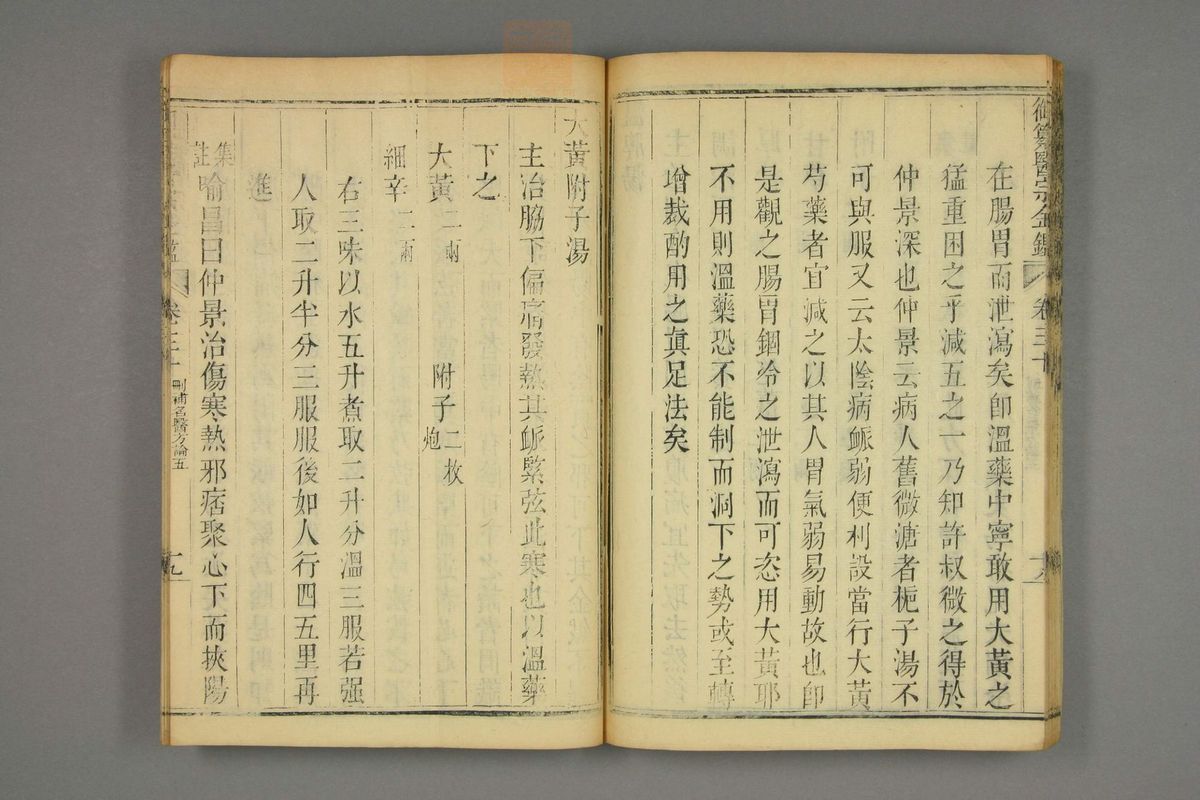 御纂醫宗金鑑 卷三十 十八
在腸胃而泄瀉矣卽溫藥中寧敢用大黃之
猛重困之乎減五之一乃知許叔微之得於
仲景深也仲景云病人舊微溏者梔子湯不
可與服又云太陰病脈弱便利設當行大黃
芍藥者宜減之以其人胃氣弱易動故也卽
是觀之腸胃錮冷之泄瀉而可恣用大黃耶
不用則溫藥恐不能制而洞下之勢或至轉
增裁酌用之眞足法矣
大黃附子湯
主治脇下偏痛發熱其脈緊弦此寒也以溫藥
下之
大黃二兩 附子二枚炮
細辛二兩
右三味以水五升煮取二升分溫三服若强
人取二升半分三服服後如人行四五里再
進
集註喻昌曰仲景治傷寒熱邪痞聚心下而挾陽
卷三十 刪補名醫方論五 十九